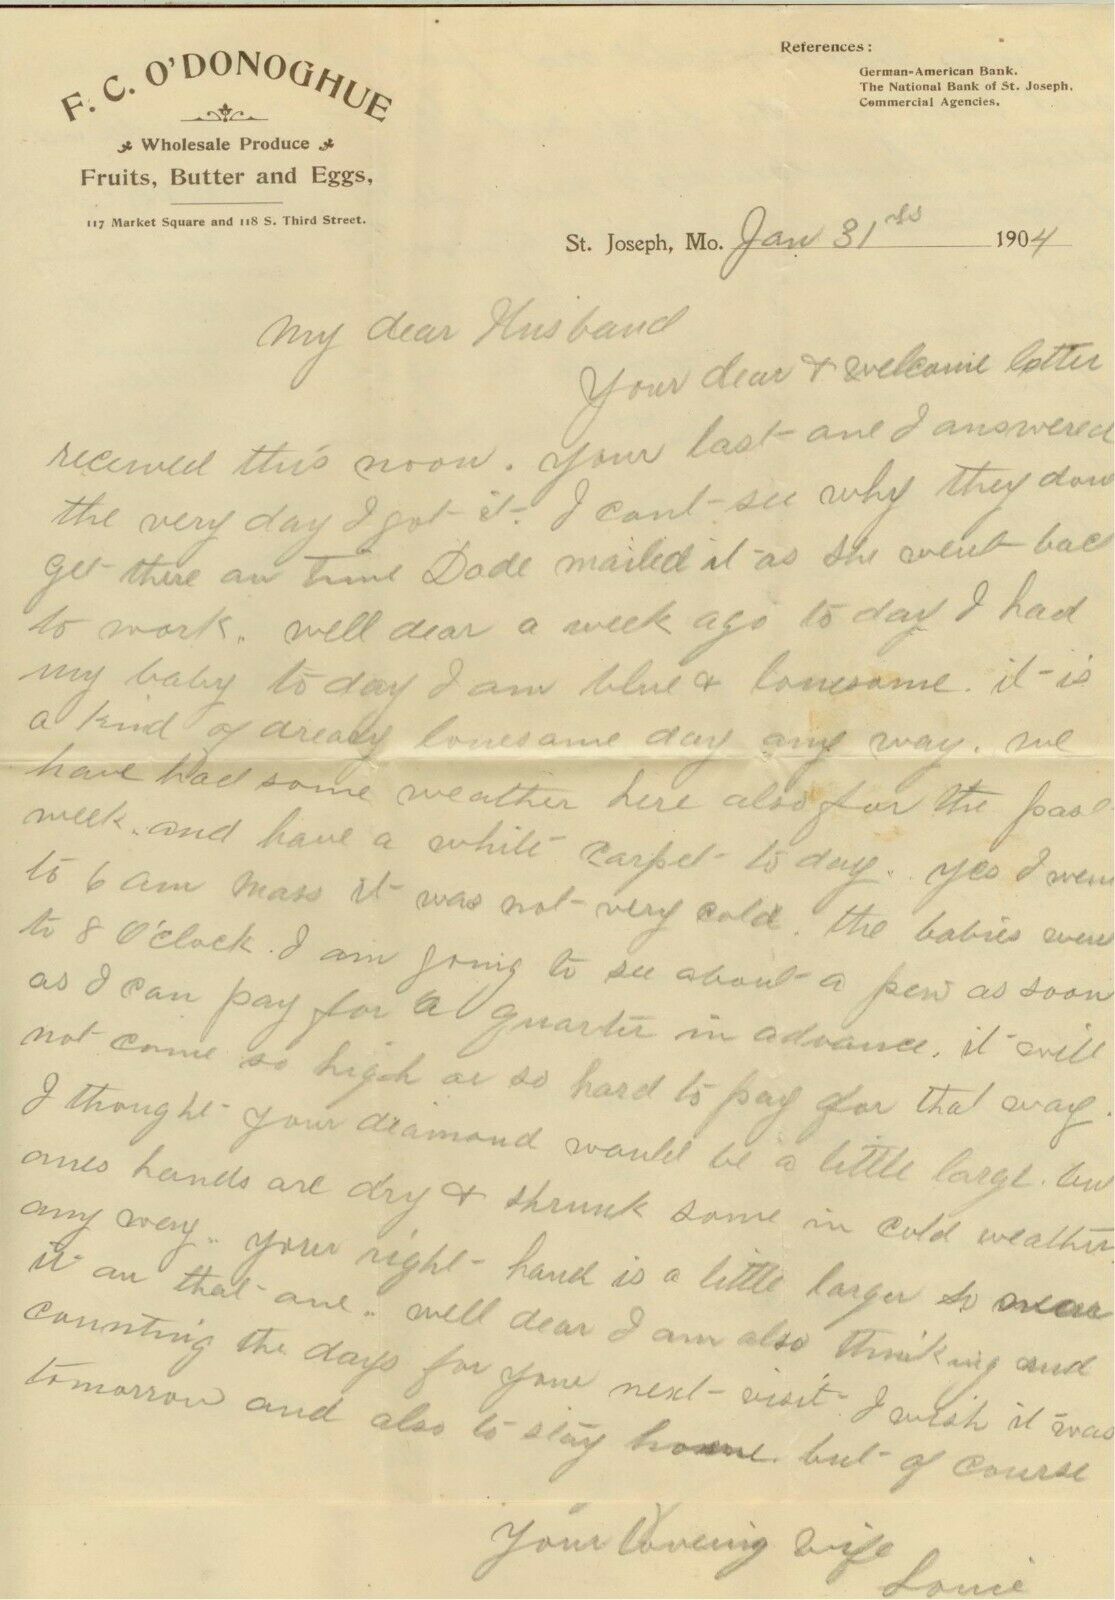 F. C. O'DONOGHUE
Wholesale Produce
Fruits, Butter and Eggs,
117 Market Square and 118 S. Third Street.
References:
German-American Bank.
The National Bank of St. Joseph.
Commercial Agencies.
St. Joseph, Mo. Jan 31st 1904
My dear Husband
Your dear & welcome letter
received this noon. Your last one I answered
the very day I got it. I cant see why they dont
get there on time Dode mailed it as she went back
to work. well dear a week ago to day I had
my baby to day I am blue & lonesome. it is
a kind of dreary lonesome day any way. we
have had some weather here also for the past
week. and have a white carpet to day. Yes I went
to 6 am Mass it was not very cold. the babies went
to 8 O'clock. I am going to see about a pew as soon
as I can pay for a quarter in advance. it will
not come so high or so hard to pay for that way.
I thought your diamond would be a little large. but
ones hands are dry & shrunk some in cold weather
any way. your right hand is a little larger so wear
it on that one. well dear I am also thinking and
counting the days for your next visit I wish it was
tomorrow and also to stay home. but of course
Your loveing wife
Louie